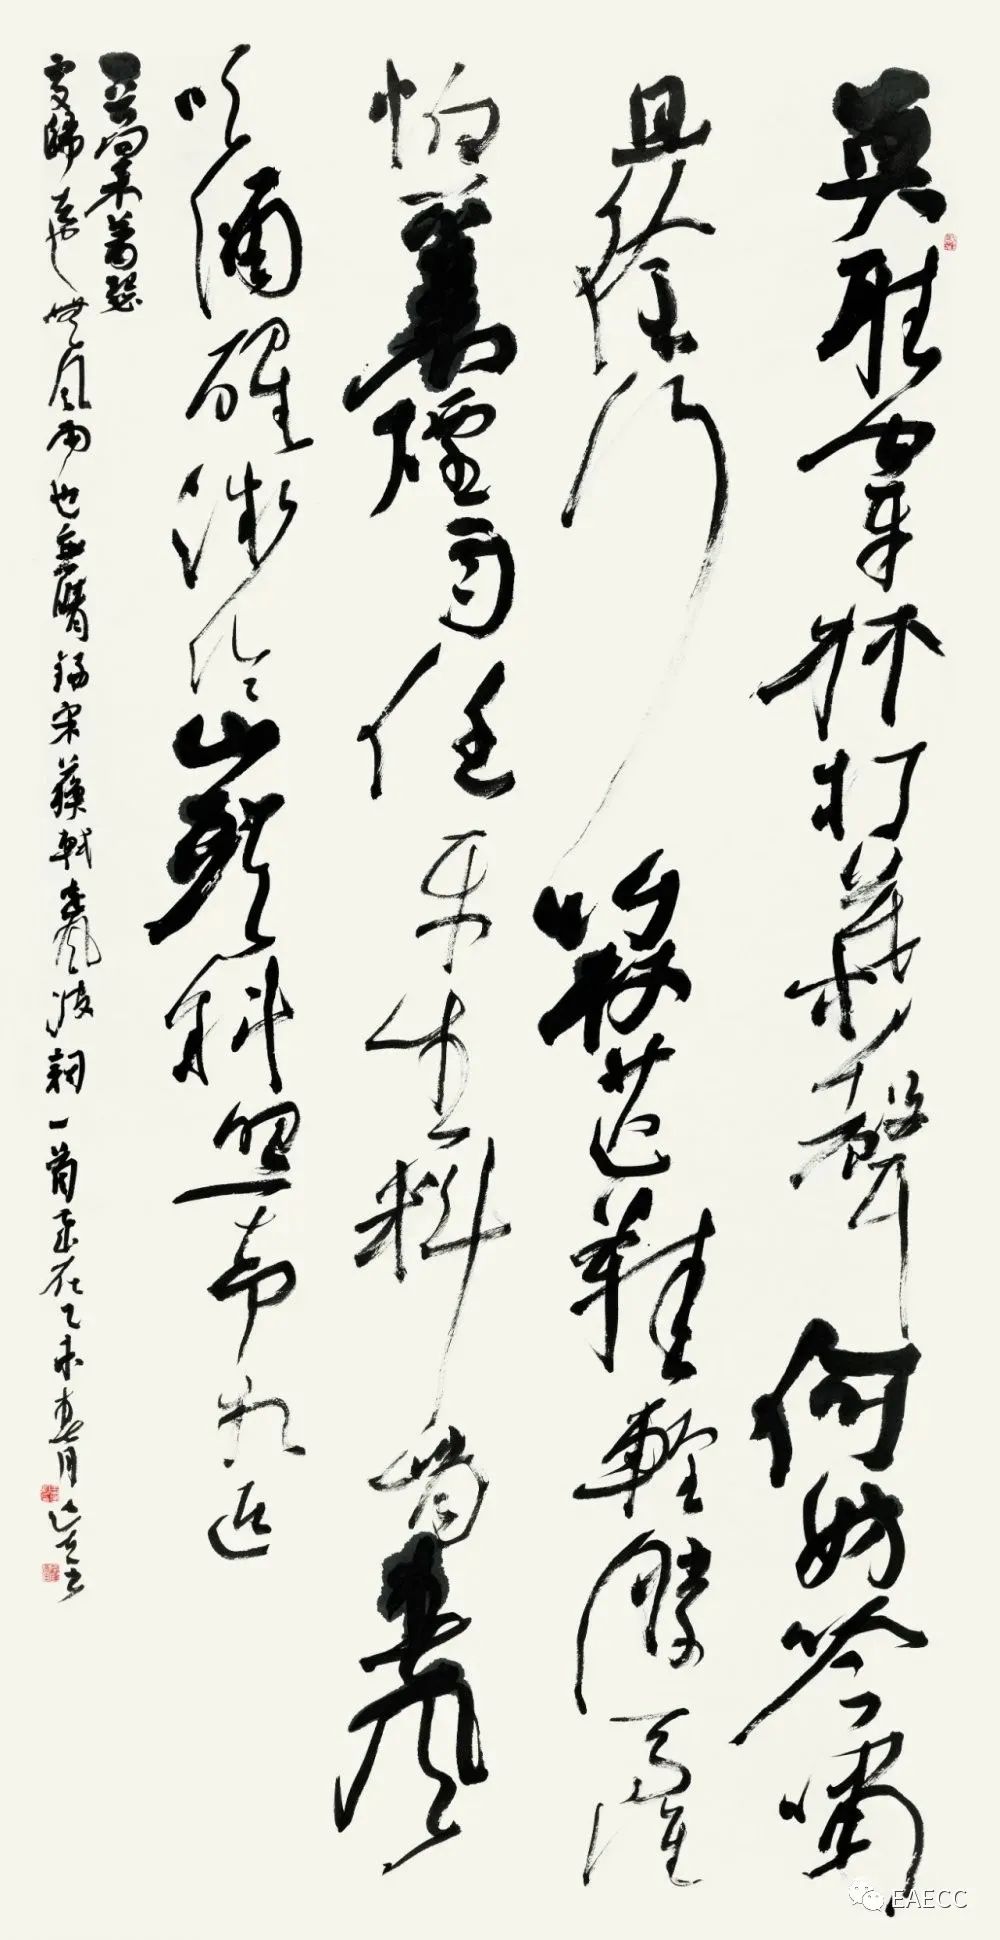 莫聽穿林打葉聲何妨吟嘯
且徐行竹杖芒鞋輕勝馬誰
怕一蓑煙雨任平生料峭春風
吹酒醒微冷山頭斜照却相迎
回首向來蕭瑟
處歸去也無風雨也無晴 錄宋蘇軾定風波詞一首歲在乙未春月 書
EAECC